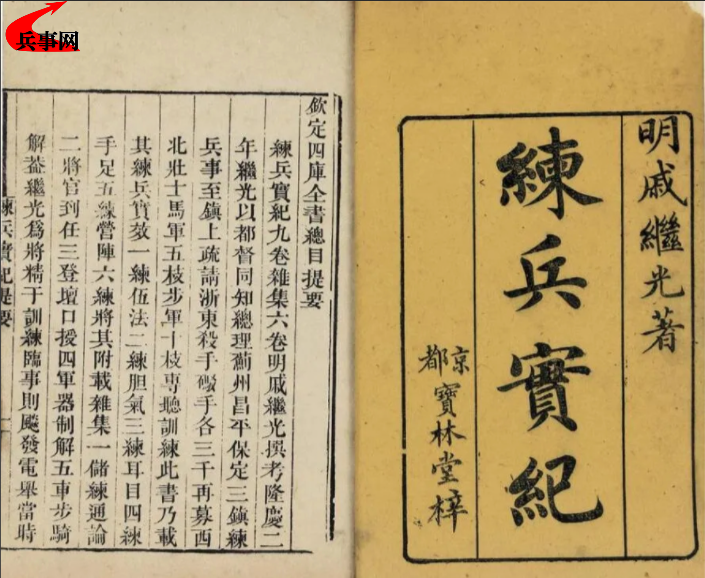 兵事网
明戚繼光著
練兵實紀
京都寶林堂梓
欽定四庫全書總目提要
練兵實紀九卷雜集六卷明戚繼光撰考隆慶二
年繼光以都督同知總理薊州昌平保定三鎮練
兵事至鎮上疏請浙東殺手礮手各三千再募西
北壯士馬軍五枝步軍十枝専聽訓練此書乃載
其練兵實效一練伍法二練胆氣三練耳目四練
手足五練營陣六練將其附載雜集一儲練通論
二將官到任三登壇口授四軍器制解五車步騎
解葢繼光爲將精于訓練臨事則飈發電舉當時
練兵實紀提要